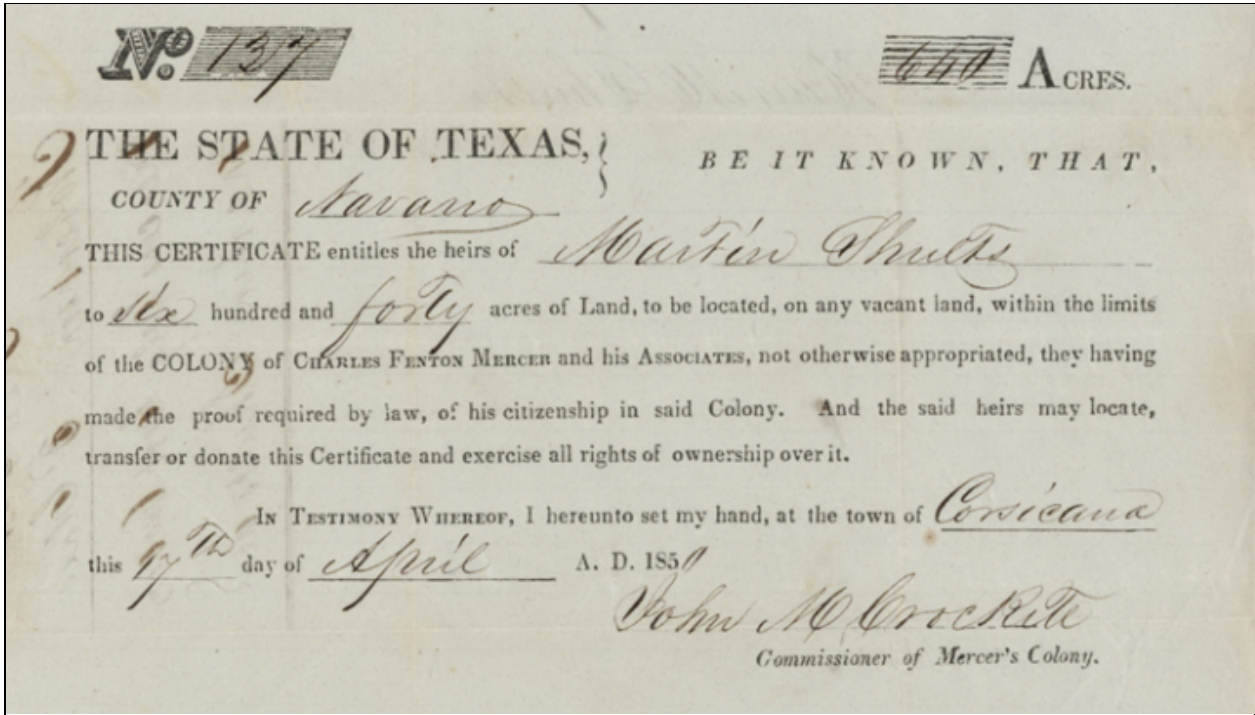 No. 137 640 ACRES.
THE STATE OF TEXAS, } BE IT KNOWN, THAT,
COUNTY OF Navarro
THIS CERTIFICATE entitles the heirs of Martin Shults
to six hundred and forty acres of Land, to be located, on any vacant land, within the limits
of the COLONY of CHARLES FENTON MERCER and his ASSOCIATES, not otherwise appropriated, they having
made the proof required by law, of his citizenship in said Colony. And the said heirs may locate,
transfer or donate this Certificate and exercise all rights of ownership over it.
IN TESTIMONY WHEREOF, I hereunto set my hand, at the town of Corsicana
this 17th day of April A. D. 1850
John M Crockett
Commissioner of Mercer's Colony.